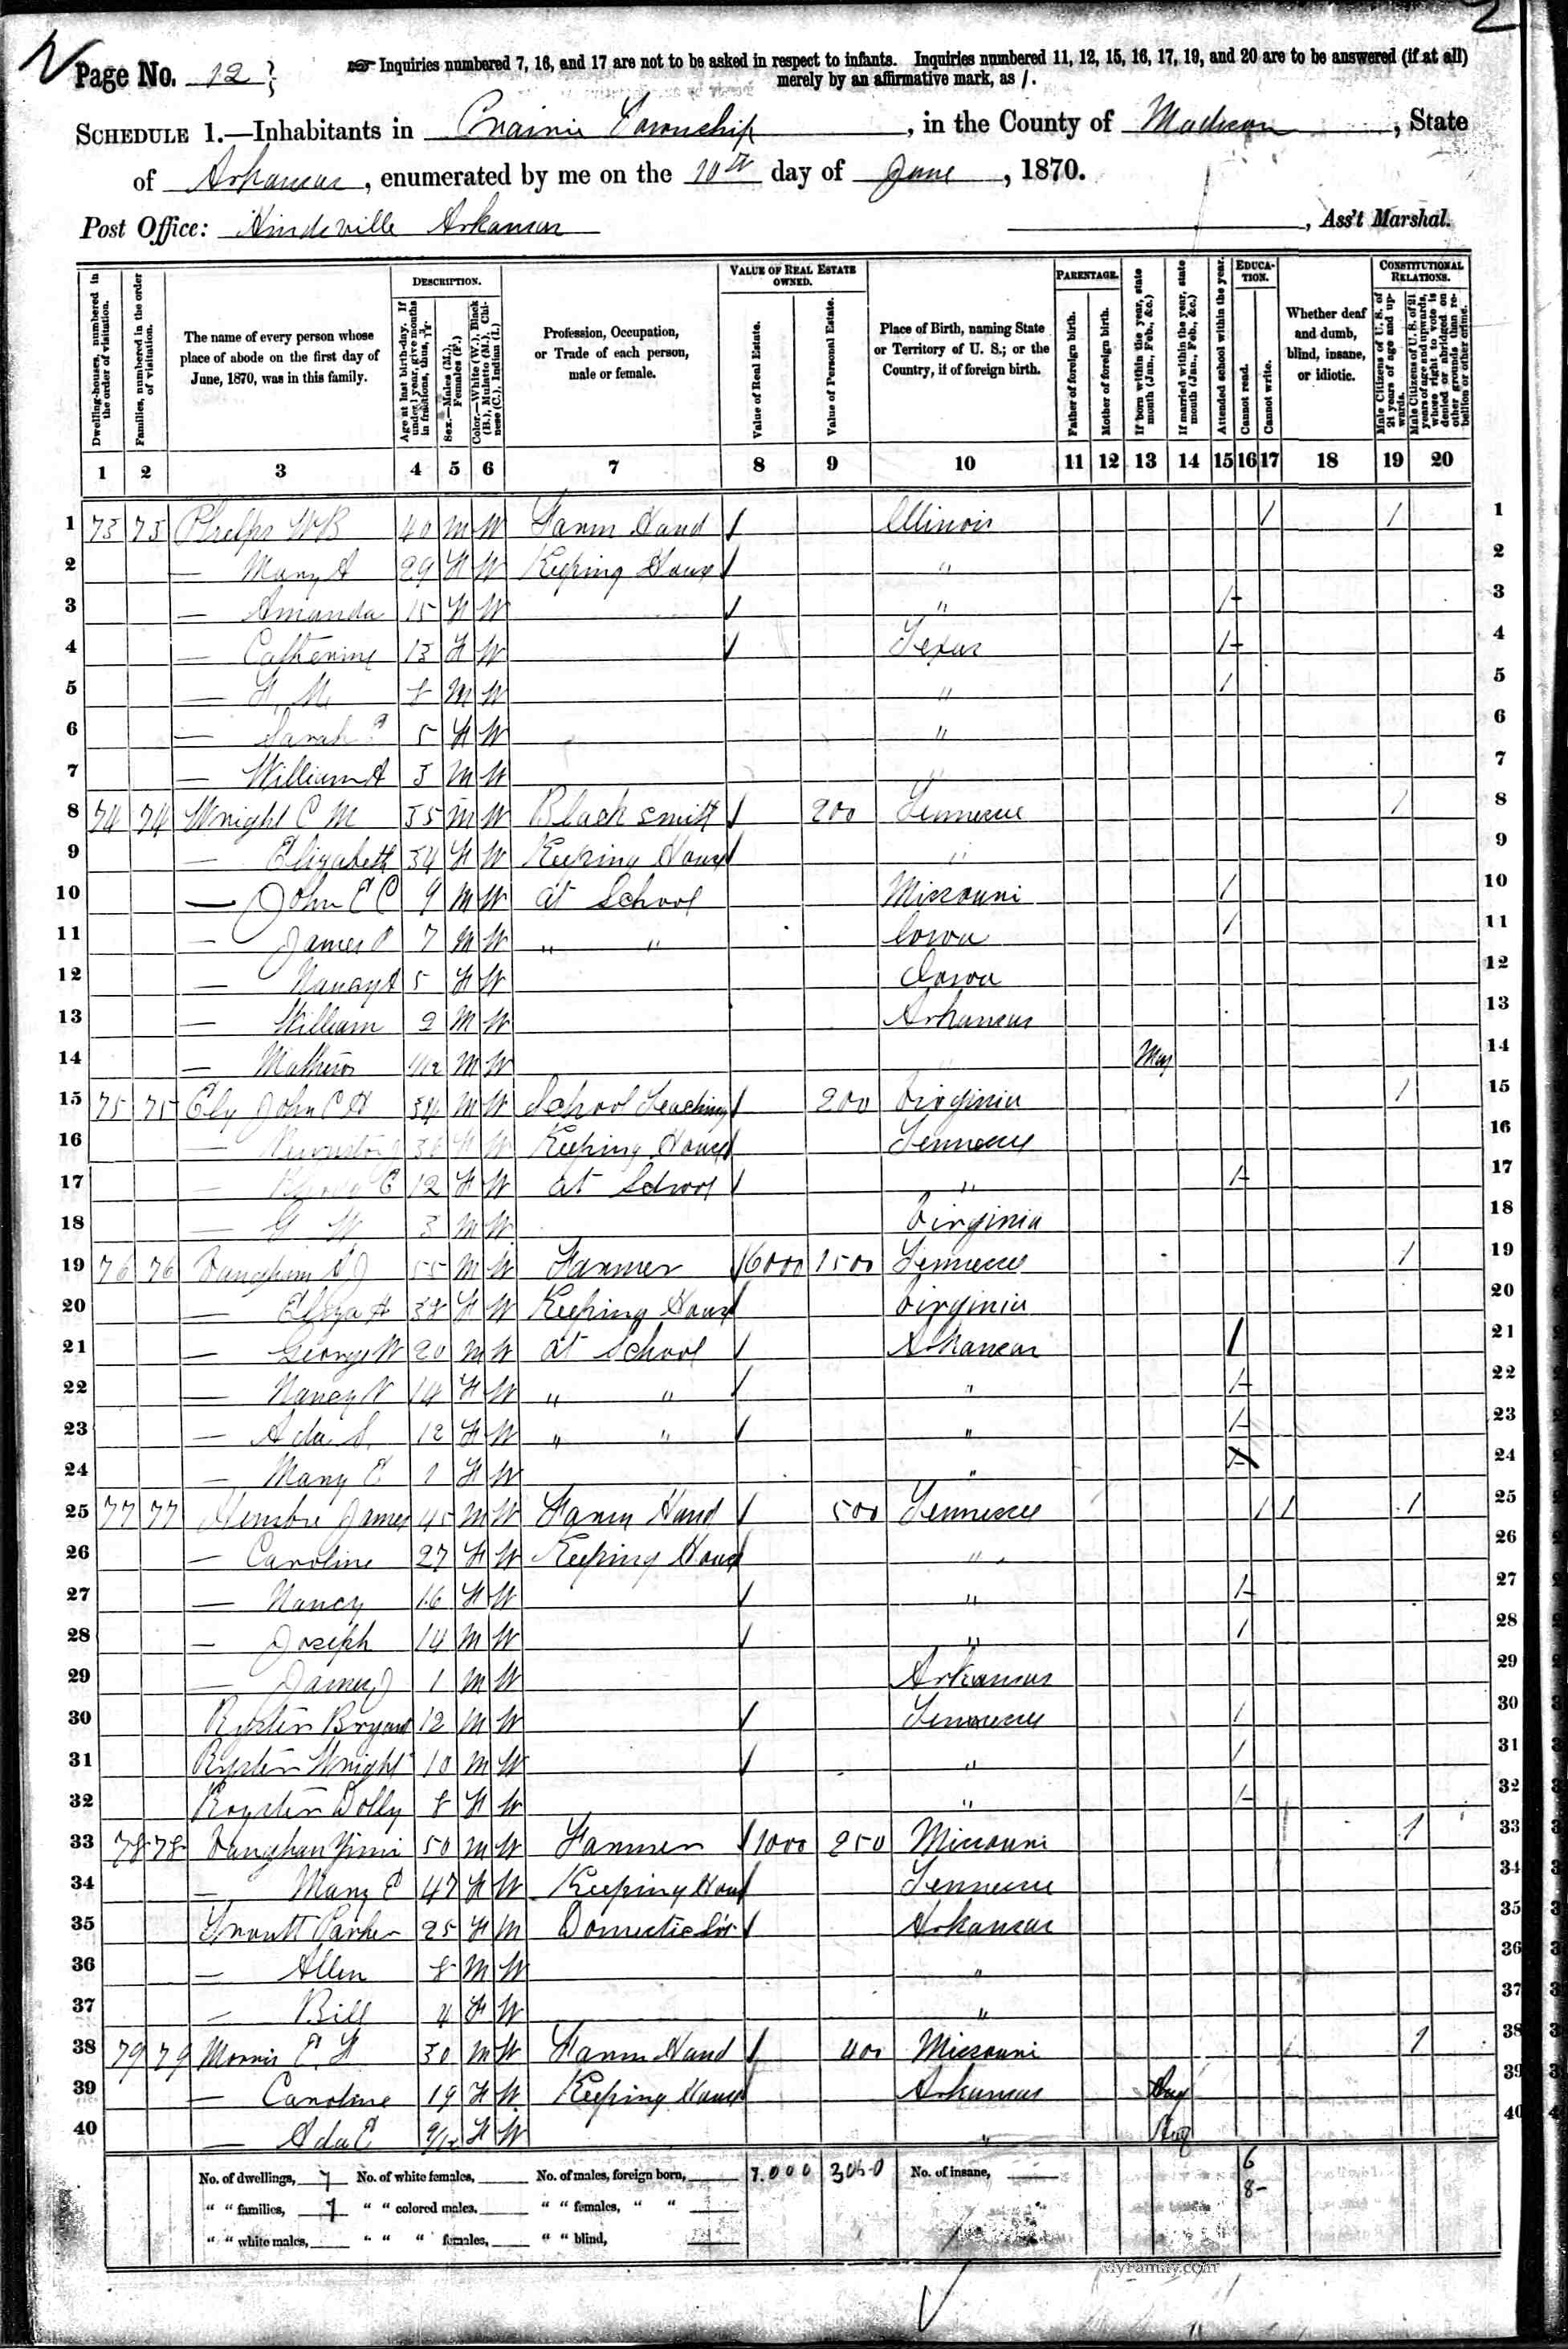 Page No. 12
Inquiries numbered 7, 16, and 17 are not to be asked in respect to infants. Inquiries numbered 11, 12, 15, 16, 17, 19, and 20 are to be answered (if at all)
merely by an affirmative mark, as /.
SCHEDULE 1.—Inhabitants in Prairie Township, in the County of Madison, State
of Arkansas, enumerated by me on the 10th day of June, 1870.
Post Office: Hindsville Arkansas , Ass't Marshal.
Dwelling-houses, numbered in the order of visitation.
Families, numbered in the order of visitation.
The name of every person whose place of abode on the first day of June, 1870, was in this family.
DESCRIPTION.
Age at last birth-day. If under 1 year, give months in fractions, thus,
Sex.—Males (M.), Females (F.)
Color.—White (W.), Black (B.), Mulatto (M.), Chinese (C.), Indian (I.)
Profession, Occupation, or Trade of each person, male or female.
VALUE OF REAL ESTATE OWNED.
Value of Real Estate.
Value of Personal Estate.
Place of Birth, naming State or Territory of U. S.; or the Country, if of foreign birth.
PARENTAGE.
Father of foreign birth.
Mother of foreign birth.
If born within the year, state month (Jan., Feb., &c.)
If married within the year, state month (Jan., Feb., &c.)
Attended school within the year.
EDUCATION.
Cannot read.
Cannot write.
Whether deaf and dumb, blind, insane, or idiotic.
CONSTITUTIONAL RELATIONS.
Male Citizens of U. S. of 21 years of age and upwards.
Male Citizens of U. S. of 21 years of age and upwards, whose right to vote is denied or abridged on other grounds than rebellion or other crime.
1 2 3 4 5 6 7 8 9 10 11 12 13 14 15 16 17 18 19 20
1 73 73 Phelps W B 40 M W Farm Hand / Illinois / / 1
2 — Mary A 29 F W Keeping House / " 2
3 — Amanda 15 F W / " / 3
4 — Catherine 13 F W / Texas / 4
5 — 8 M W " / 5
6 — Sarah 5 F W " 6
7 — William A 3 M W " 7
8 74 74 Wright C M 35 M W Black smith / 200 Tennessee / 8
9 — Elizabeth 34 F W Keeping House / " 9
10 — John E C 9 M W at School Missouri / 10
11 — James P 7 M W " " Iowa / 11
12 — Nancy A 5 F W Iowa 12
13 — William 2 M W Arkansas 13
14 — Mathew 1/12 M W " May 14
15 75 75 Ely John C H 34 M W School Teaching / 200 Virginia / 15
16 — F W Keeping House / Tennessee 16
17 — 12 F W at School / " / 17
18 — G W 3 M W Virginia 18
19 76 76 55 M W Farmer / 6000 1500 Tennessee / 19
20 — Eliza A 38 F W Keeping House / Virginia 20
21 — George W 20 M W at School / Arkansas / 21
22 — Nancy N 14 F W " " / " / 22
23 — Ada S. 12 F W " " / " / 23
24 — Mary E 1 F W " 24
25 77 77 James 45 M W Farm Hand / 500 Tennessee / / / 25
26 — Caroline 27 F W Keeping House " 26
27 — Nancy 16 F W / " / 27
28 — Joseph 14 M W / " / 28
29 — James J 1 M W Arkansas 29
30 Bryant 12 M W / Tennessee / 30
31 Wright 10 M W / " / 31
32 Royster Dolly 8 F W " / 32
33 78 78 Vaughan 50 M W Farmer / 1000 250 Missouri / 33
34 — Mary E 47 F W Keeping House / Tennessee 34
35 Parker 25 F M Domestic / Arkansas 35
36 — Allen 8 M W " 36
37 — Bill 4 F W " 37
38 79 79 Morris E. F 30 M W Farm Hand / 400 Missouri / 38
39 — Caroline 19 F W Keeping House Arkansas Aug 39
40 — Ada E 9/12 F W " Aug 40
No. of dwellings, 7 No. of white females, No. of males, foreign born, 7.000 3050 No. of insane, 6
" " families, 7 " " colored males, " " females, " " 8
" " white males, " " " females, " " blind,
MyFamily.com